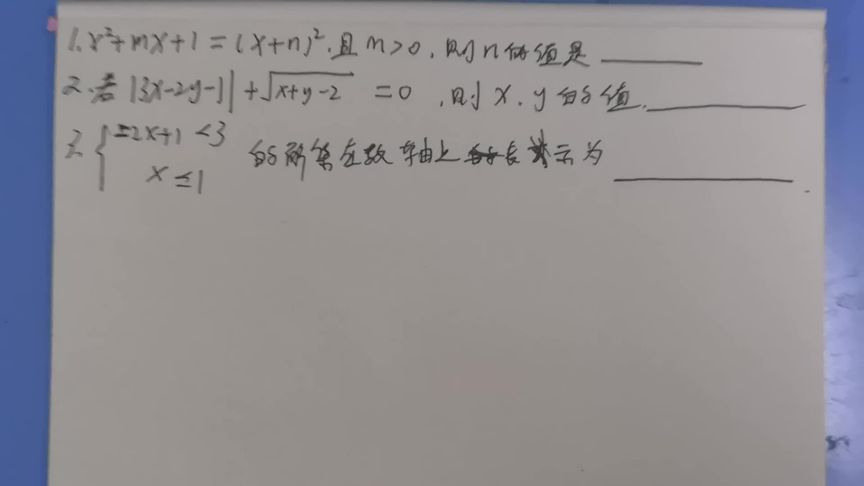 1. x²+mx+1=(x+n)²,且m>0,则n的值是
2.若|3x-2y-1|+√x+y-2 =0,则x、y的值
3.{-2x+1<3 的解集在数轴上表示为
x≤1